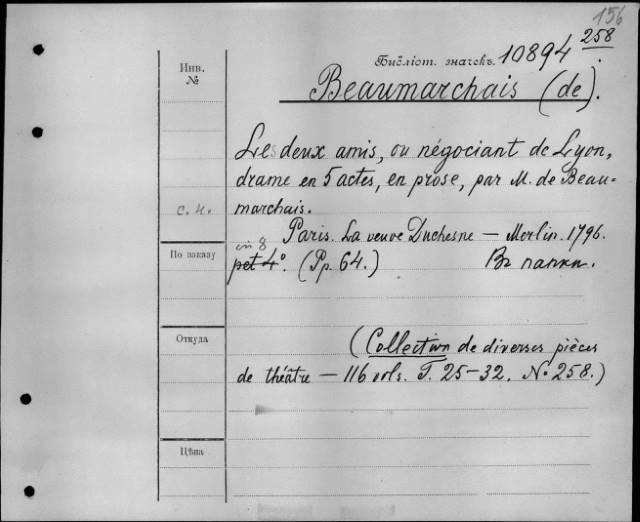 156
258
Инв.
№
Библіот. значекъ. 10894
Beaumarchais (de).
Les deux amis, ou négociant de Lyon,
drame en 5 actes, en prose, par M. de Beau-
с. н.
marchais.
Paris. La veuve Duchesne — Merlin. 1796.
in 8
По заказу
pet 4°. (Pp. 64.) Въ папки.
Откуда
(Collection de diverses pièces
de théâtre — 116 vols. T. 25-32. No 258.)
Цѣна